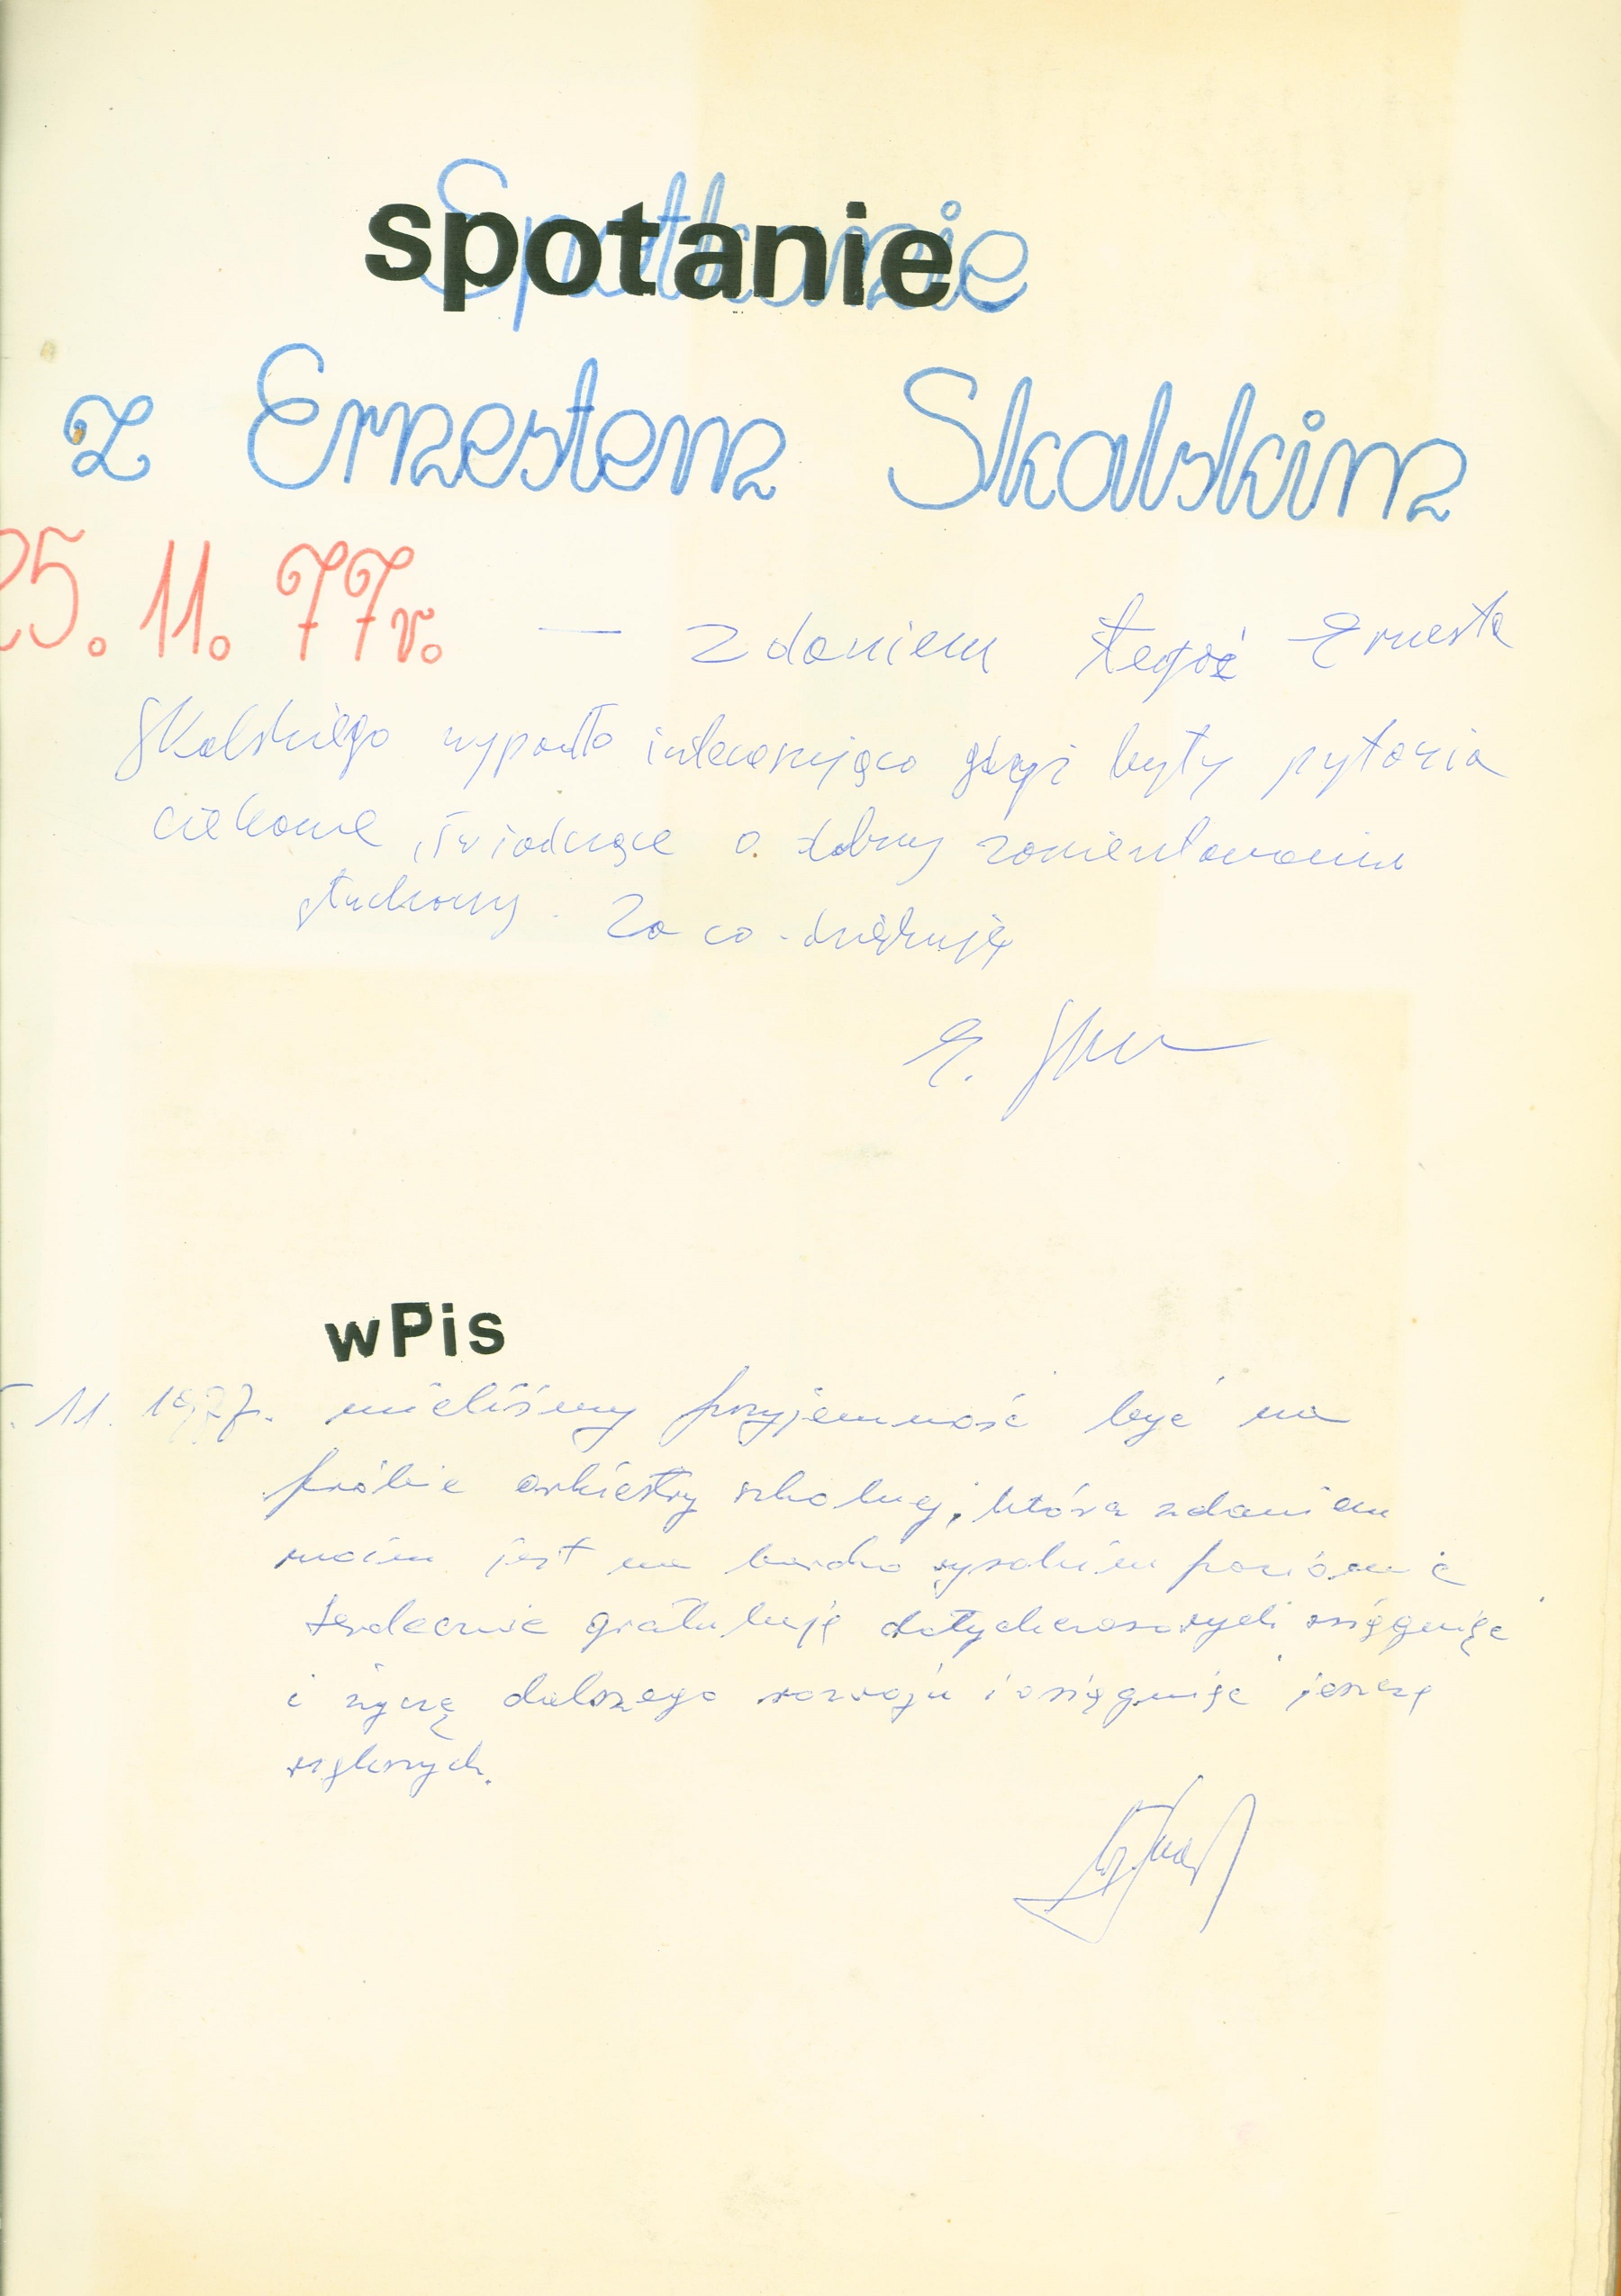 spotanie
Spotkanie
z Ernestem Skalskim
25. 11. 77r. — Zdaniem tegoż Ernesta
Skalskiego wypadło interesująco gdyż były pytania
ciekawe, świadczące o dobrym zorientowaniu
słuchaczy. Za co dziękuję
E. Ska
wPis
. 11. 1977r. mieliśmy przyjemność być na
próbie orkiestry szkolnej, która zdaniem
moim jest na bardzo wysokim poziomie
Serdecznie gratuluję dotychczasowych osiągnięć
i życzę dalszego rozwoju i osiągnięć jeszcze
większych.